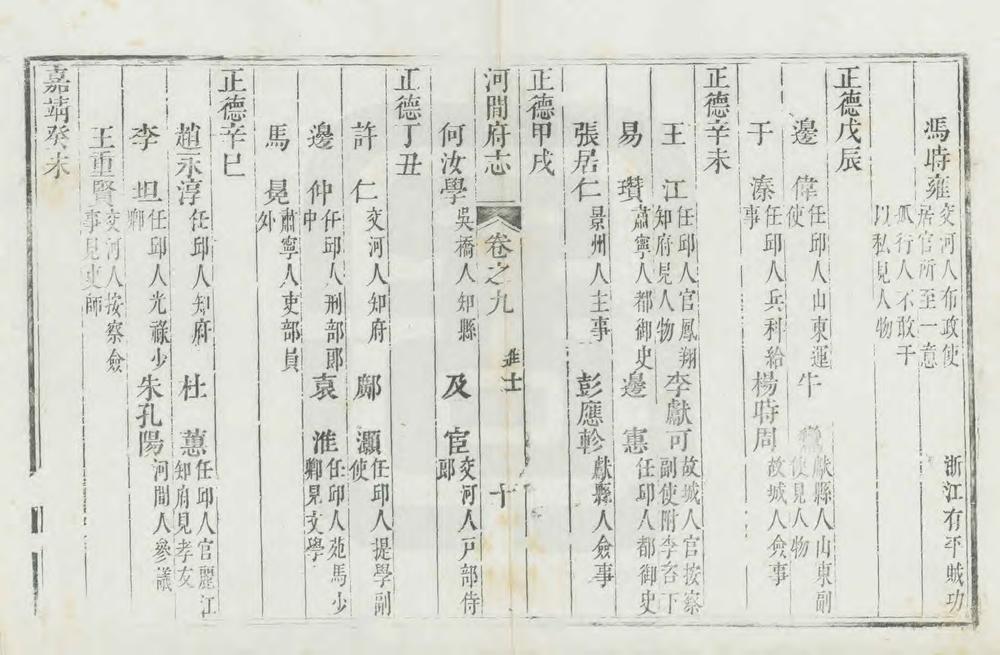 馮時雍 交河人布政使 浙江有平賊功
居官所至一意
孤行人不敢干
以私見人物
正德戊辰
邊偉 任邱人山東運使 牛鸞 獻縣人山東副使見人物
于溱 任邱人兵科給事 楊時周 故城人僉事
正德辛未
王江 任邱人官鳳翔知府見人物 李獻可 故城人官按察副使附李吝下
易瓚 肅寧人都御史 邊憲 任邱人都御史
張居仁 景州人主事 彭應軫 獻縣人僉事
正德甲戌
河間府志 卷之九 進士 十
何汝學 吳橋人知縣 及宦 交河人戸部侍郎
正德丁丑
許仁 交河人知府 鄺灝 任邱人提學副使
邊仲 任邱人刑部郎中 袁淮 任邱人苑馬少卿見文學
馬冕 肅寧人吏部員外
正德辛巳
趙永淳 任邱人知府 杜蕙 任邱人官麗江知府見孝友
李坦 任邱人光祿少卿 朱孔陽 河間人參議
王重賢 交河人按察僉事見吏師
嘉靖癸未